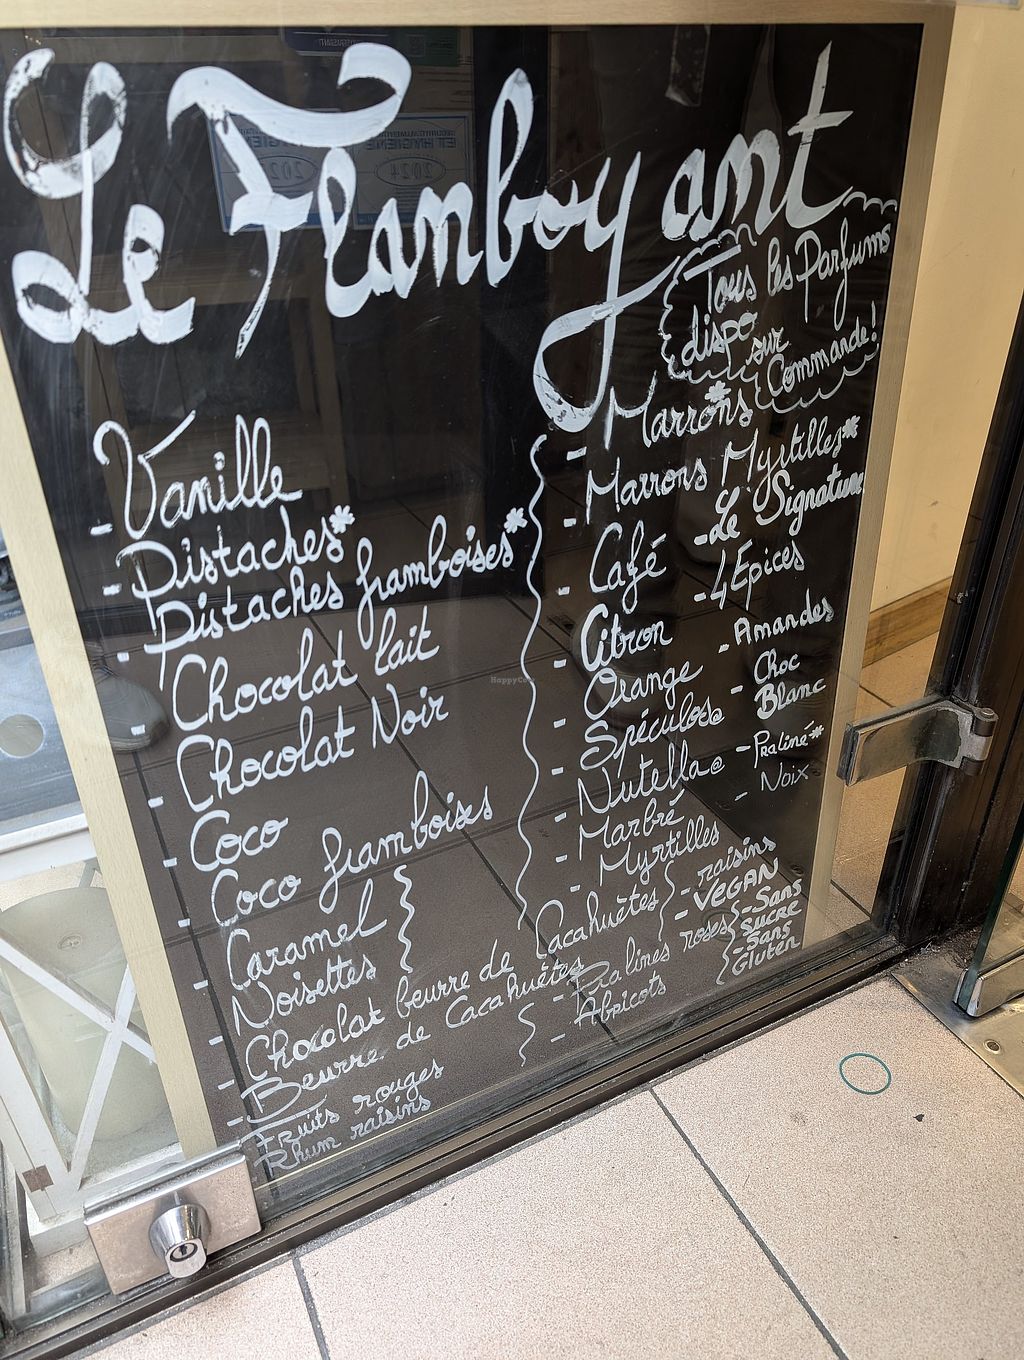 Le Flamboyant
Tous les Parfums
dispo
sur
Commande!
- Vanille
- Pistaches*
- Pistaches framboises*
- Chocolat lait
- Chocolat Noir
- Coco
- Coco framboises
- Caramel
Noisettes
- Chocolat beurre de Cacahuètes
- Beurre de Cacahuètes
- Fruits rouges
Rhum raisins
- Marrons*
- Marrons Myrtilles*
- Café
- Citron
- Orange
- Spéculos@
- Nutella@
- Marbré
- Myrtilles
- Pralines roses
- Abricots
- Le Signature
- 4 Epices
- Amandes
- Choc
Blanc
- Praliné*
- Noix
- raisins
- VEGAN
- Sans
SUCRE
- Sans
Gluten
HappyCow